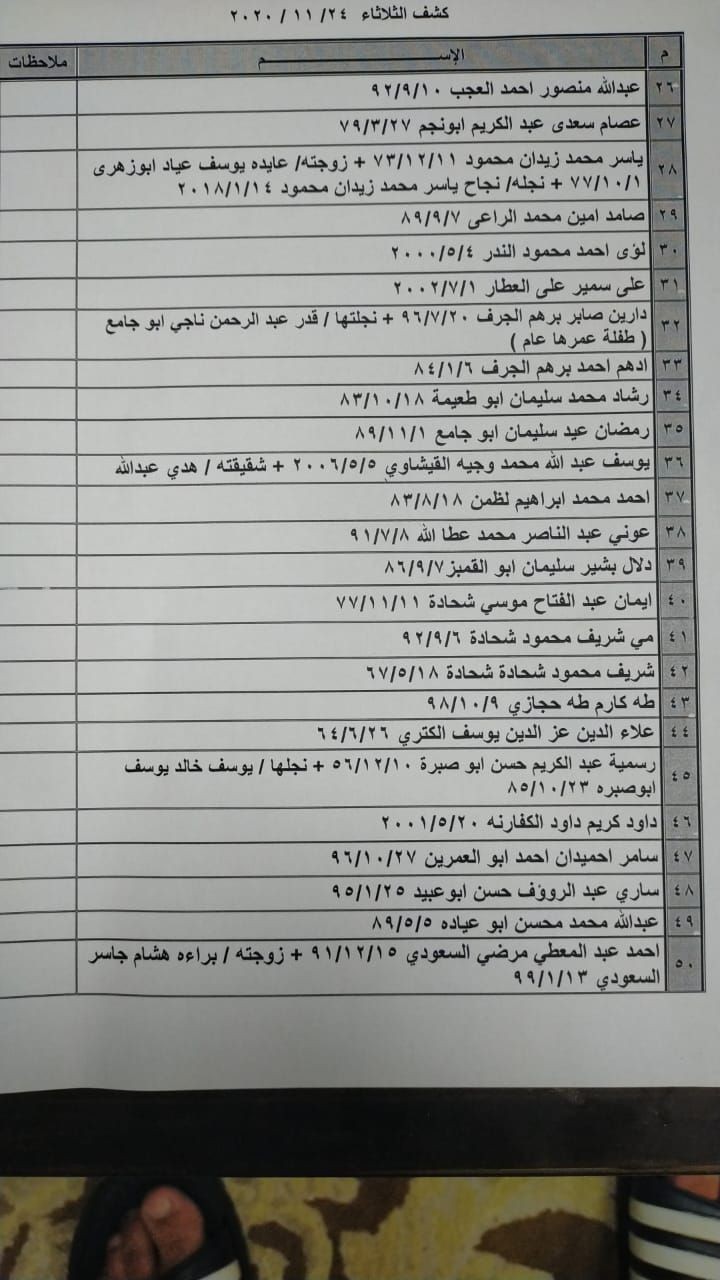 كشف الثلاثاء ٢٤/ ١١ / ٢٠٢٠
م الإســـــــــم ملاحظات
٢٦ عبدالله منصور احمد العجب ٩٢/٩/١٠
٢٧ عصام سعدى عبد الكريم ابونجم ٧٩/٣/٢٧
٢٨ ياسر محمد زيدان محمود ٧٣/١٢/١١ + زوجته/ عايده يوسف عياد ابوزهرى
٧٧/١٠/١ + نجله/ نجاح ياسر محمد زيدان محمود ٢٠١٨/١/١٤
٢٩ صامد امين محمد الراعى ٨٩/٩/٧
٣٠ لؤى احمد محمود الندر ٢٠٠٠/٥/٤
٣١ على سمير على العطار ٢٠٠٢/٧/١
٣٢ دارين صابر برهم الجرف ٩٦/٧/٢٠ + نجلتها / قدر عبد الرحمن ناجي ابو جامع
( طفلة عمرها عام )
٣٣ ادهم احمد برهم الجرف ٨٤/١/٦
٣٤ رشاد محمد سليمان ابو طعيمة ٨٣/١٠/١٨
٣٥ رمضان عيد سليمان ابو جامع ٨٩/١١/١
٣٦ يوسف عبد الله محمد وجيه القيشاوي ٢٠٠٦/٥/٥ + شقيقته / هدي عبدالله
٣٧ احمد محمد ابراهيم لظمن ٨٣/٨/١٨
٣٨ عوني عبد الناصر محمد عطا الله ٩١/٧/٨
٣٩ دلال بشير سليمان ابو القمبز ٨٦/٩/٧
٤٠ ايمان عبد الفتاح موسي شحادة ٧٧/١١/١١
٤١ مي شريف محمود شحادة ٩٢/٩/٦
٤٢ شريف محمود شحادة شحادة ٦٧/٥/١٨
٤٣ طه كارم طه حجازي ٩٨/١٠/٩
٤٤ علاء الدين عز الدين يوسف الكتري ٦٤/٦/٢٦
٤٥ رسمية عبد الكريم حسن ابو صبرة ٥٦/١٢/١٠ + نجلها / يوسف خالد يوسف
ابوصبره ٨٥/١٠/٢٣
٤٦ داود كريم داود الكفارنه ٢٠٠١/٥/٢٠
٤٧ سامر احميدان احمد ابو العمرين ٩٦/١٠/٢٧
٤٨ ساري عبد الرووف حسن ابوعبيد ٩٥/١/٢٥
٤٩ عبدالله محمد محسن ابو عياده ٨٩/٥/٥
٥٠ احمد عبد المعطي مرضي السعودي ٩١/١٢/١٥ + زوجته / براءه هشام جاسر
السعودي ٩٩/١/١٣